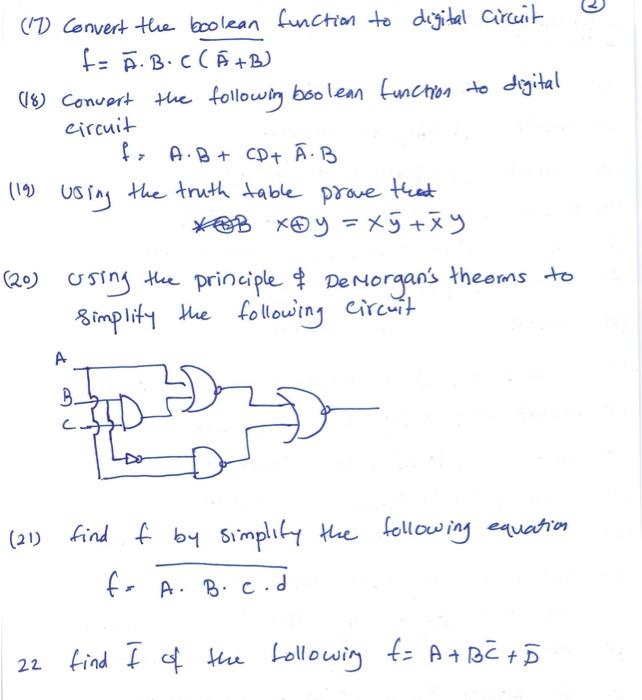 (2)
(17) Convert the boolean function to digital circuit
f = A̅. B. C ( A̅ + B)
(18) Convert the following boolean function to digital
circuit
f = A.B + CD + A̅.B
(19) Using the truth table prove that
x⊕B x⊕y = xy̅ + x̅y
(20) using the principle & DeMorgan's theorms to
simplify the following circuit
A
B
C
(21) find f by simplify the following equation
f = A̅.̅ ̅B̅.̅ ̅C̅.̅d̅
22 find I̅ of the following f = A + BC̅ + D̅